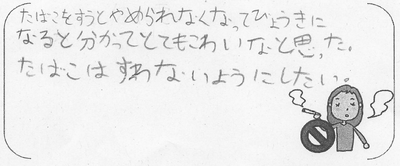 たばこをすうとやめられなくなってびょうきに
なると分かってとてもこわいなと思った。
たばこはすわないようにしたい。